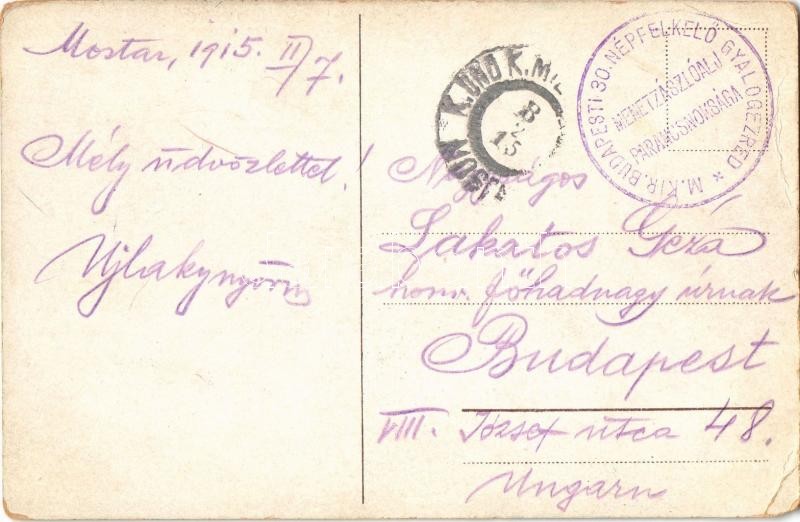 Mostar, 1915. II/7.
Mély üdvözlettel!
M. KIR. BUDAPESTI 30. NÉPFELKELŐ GYALOGEZRED
MENETZÁSZLÓALJ
PARANCSNOKSÁGA
K. UND K. MIL
8
2
15
MOST
Nagyságos
Lakatos Géza
honv. főhadnagy úrnak
Budapest
VIII. József utca 48.
Ungarn